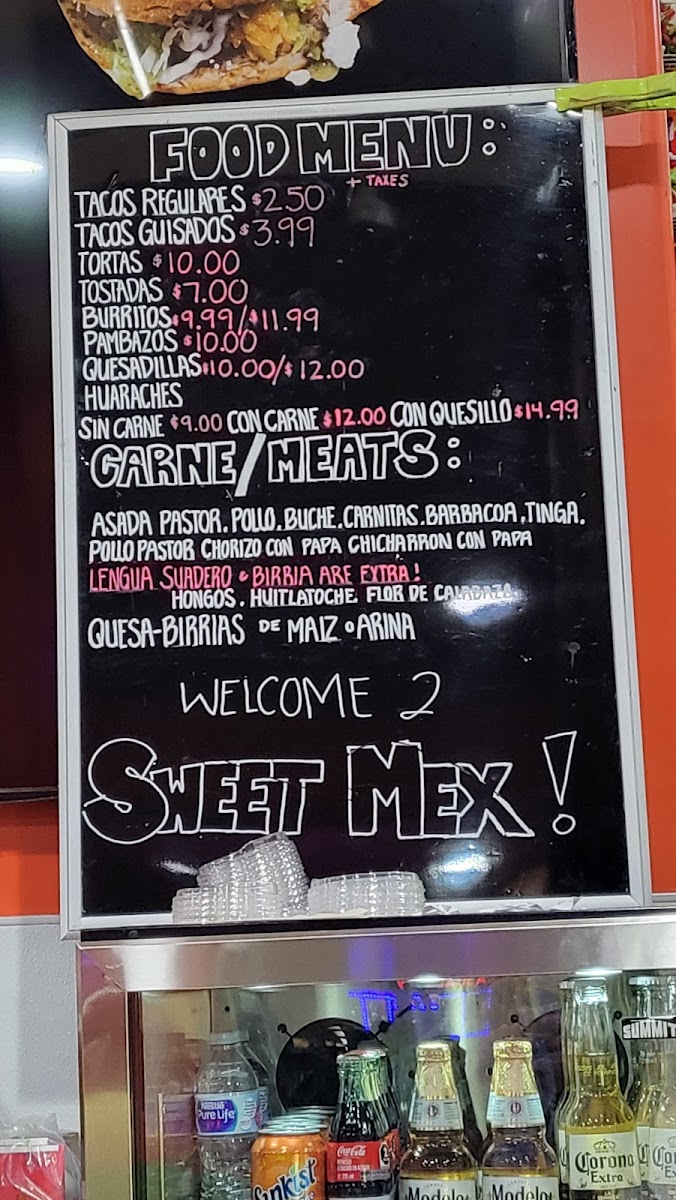 FOOD MENU:
+ TAXES
TACOS REGULARES $2.50
TACOS GUISADOS $3.99
TORTAS $10.00
TOSTADAS $7.00
BURRITOS $9.99/$11.99
PAMBAZOS $10.00
QUESADILLAS $10.00/$12.00
HUARACHES
SIN CARNE $9.00 CON CARNE $12.00 CON QUESILLO $14.99
CARNE/MEATS:
ASADA PASTOR. POLLO. BUCHE. CARNITAS. BARBACOA. TINGA.
POLLO PASTOR CHORIZO CON PAPA CHICHARRON CON PAPA
LENGUA SUADERO & BIRRIA ARE EXTRA!
HONGOS. HUITLATOCHE. FLOR DE CALABAZA
QUESA-BIRRIAS DE MAIZ O ARINA
WELCOME 2
SWEET MEX!
SUMMIT
Nestle
Pure Life
Coca-Cola
Sunkist
Modelo
Modelo
Corona
Extra